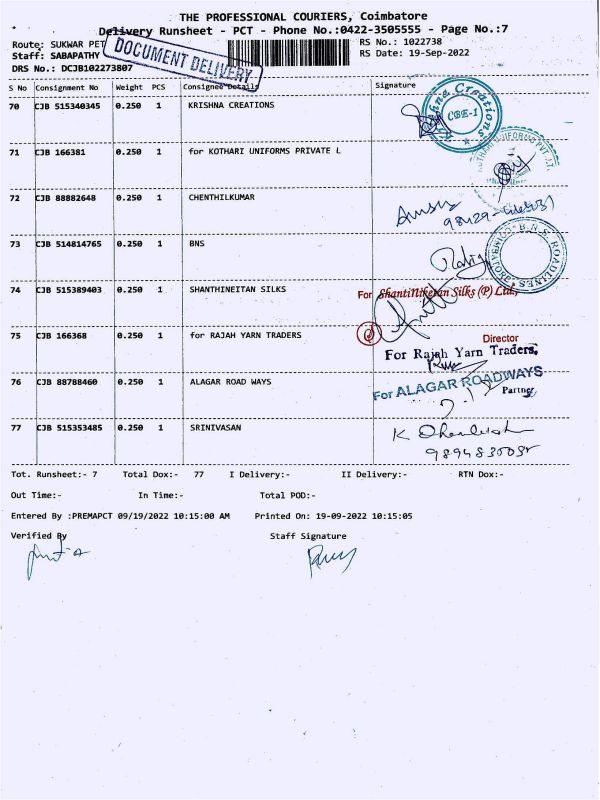 THE PROFESSIONAL COURIERS, Coimbatore
Delivery Runsheet - PCT - Phone No.:0422-3505555 - Page No.:7
Route: SUKWAR PET
RS No.: 1022738
Staff: SABAPATHY
RS Date: 19-Sep-2022
DRS No.: DCJB102273807
DOCUMENT DELIVERY
S No Consignment No Weight PCS Consignee Details Signature
70 CJB 515340345 0.250 1 KRISHNA CREATIONS
Krishna Creations CBE-1
71 CJB 166381 0.250 1 for KOTHARI UNIFORMS PRIVATE L
72 CJB 88882648 0.250 1 CHENTHILKUMAR
73 CJB 514814765 0.250 1 BNS
B.N.S. ROADLINES
74 CJB 515389403 0.250 1 SHANTHINEITAN SILKS
For ShantiNiketan Silks (P) Ltd.,
75 CJB 166368 0.250 1 for RAJAH YARN TRADERS
Director
For Rajah Yarn Traders,
76 CJB 88788460 0.250 1 ALAGAR ROAD WAYS
For ALAGAR ROADWAYS
Partner
77 CJB 515353485 0.250 1 SRINIVASAN
Tot. Runsheet:- 7 Total Dox:- 77 I Delivery:- II Delivery:- RTN Dox:-
Out Time:- In Time:- Total POD:-
Entered By :PREMAPCT 09/19/2022 10:15:00 AM Printed On: 19-09-2022 10:15:05
Verified By Staff Signature